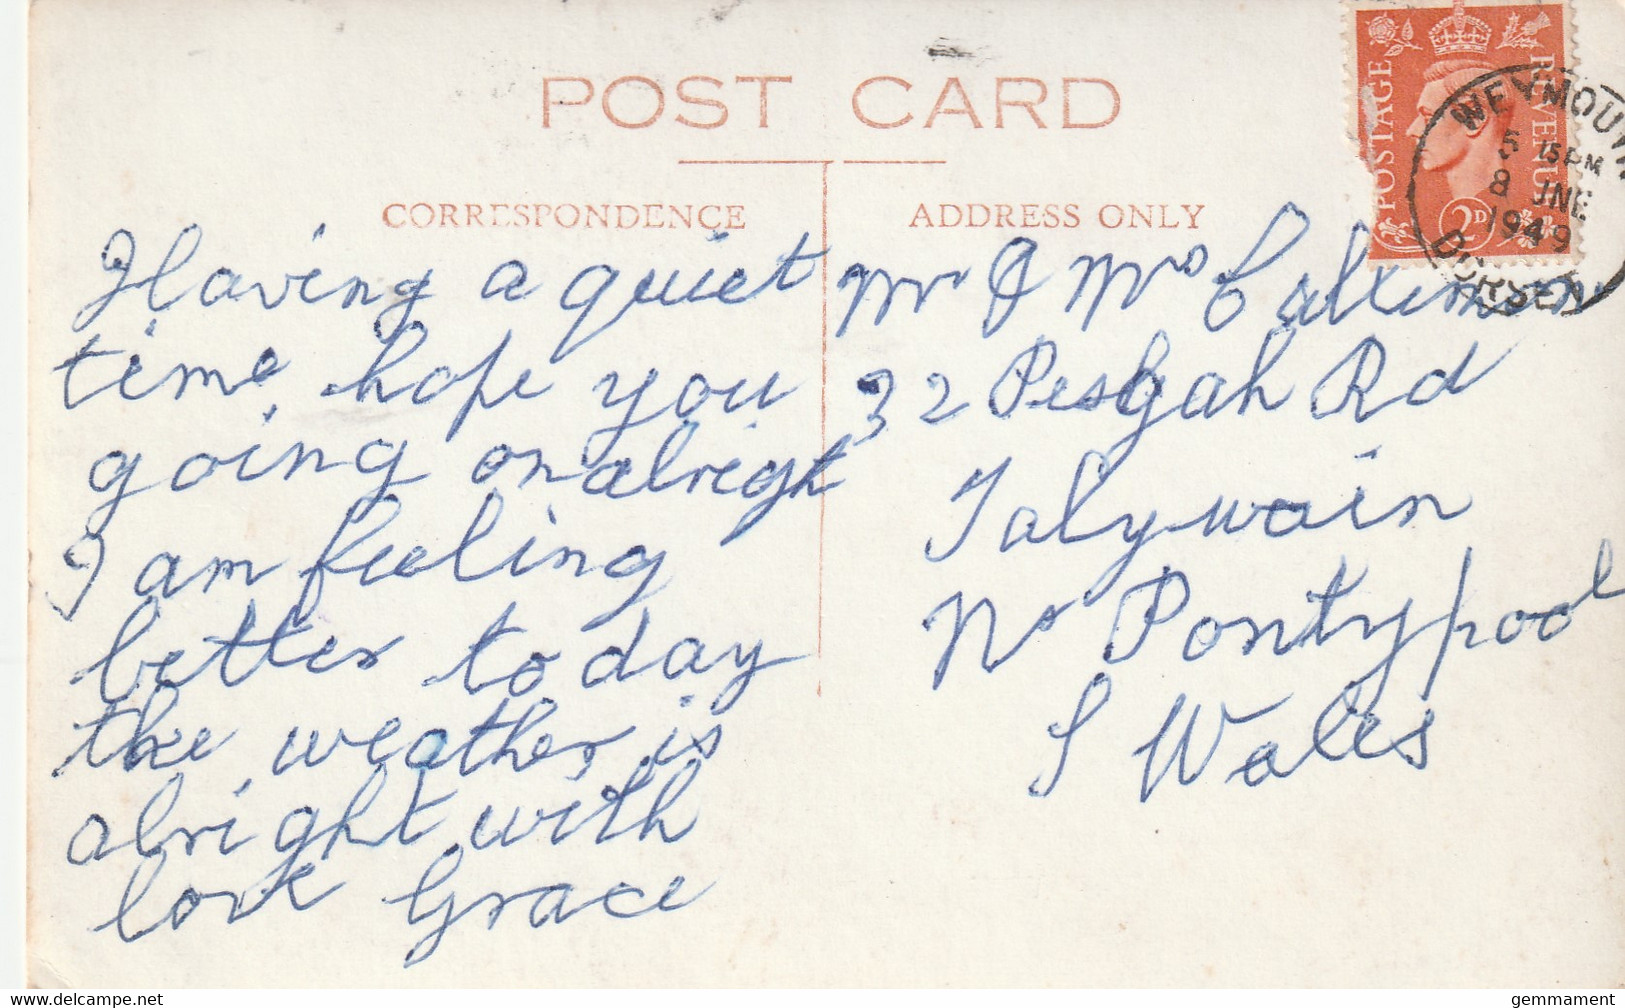 POST CARD
CORRESPONDENCE
ADDRESS ONLY
Having a quiet
time, hope you
going on alright
I am feeling
better to day
the weather is
alright with
love Grace
Mr & Mrs
32 Pesgah Rd
Talywain
Nr Pontypool
S Wales
POSTAGE
REVENUE
2D
WEYMOUTH
5 15 PM
8 JNE
1949
DORSET
www.delcampe.net
gemmament